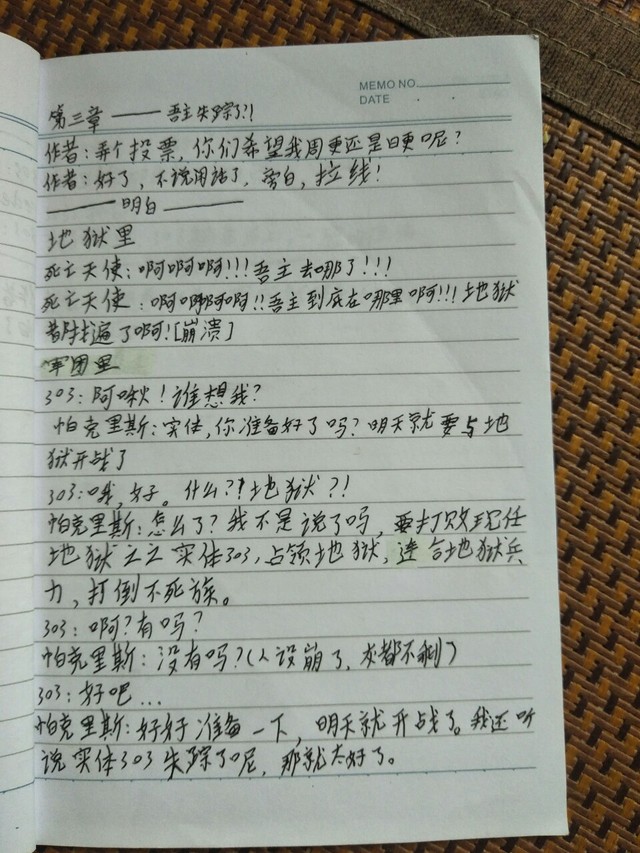 MEMO NO.
DATE . .
第三章——吾主失踪了?!
作者:弄个投票,你们希望我周更还是日更呢?
作者:好了,不说闲话了,旁白,拉线!
——明白——
地狱里
死亡天使:啊啊啊!!!吾主去哪了!!!
死亡天使:啊啊啊啊啊!!吾主到底在哪里啊!!!地狱
都找遍了啊![崩溃]
军团里
303:阿啾!谁想我?
帕克里斯:实体,你准备好了吗?明天就要与地
狱开战了
303:哦,好。什么?!地狱?!
帕克里斯:怎么了?我不是说了吗,要打败现任
地狱之主实体303,占领地狱,连合地狱兵
力,打倒不死族。
303:啊?有吗?
帕克里斯:没有吗?(人设崩了,灰都不剩)
303:好吧...
帕克里斯:好好准备一下,明天就开战了。我还听
说实体303失踪了呢,那就太好了。